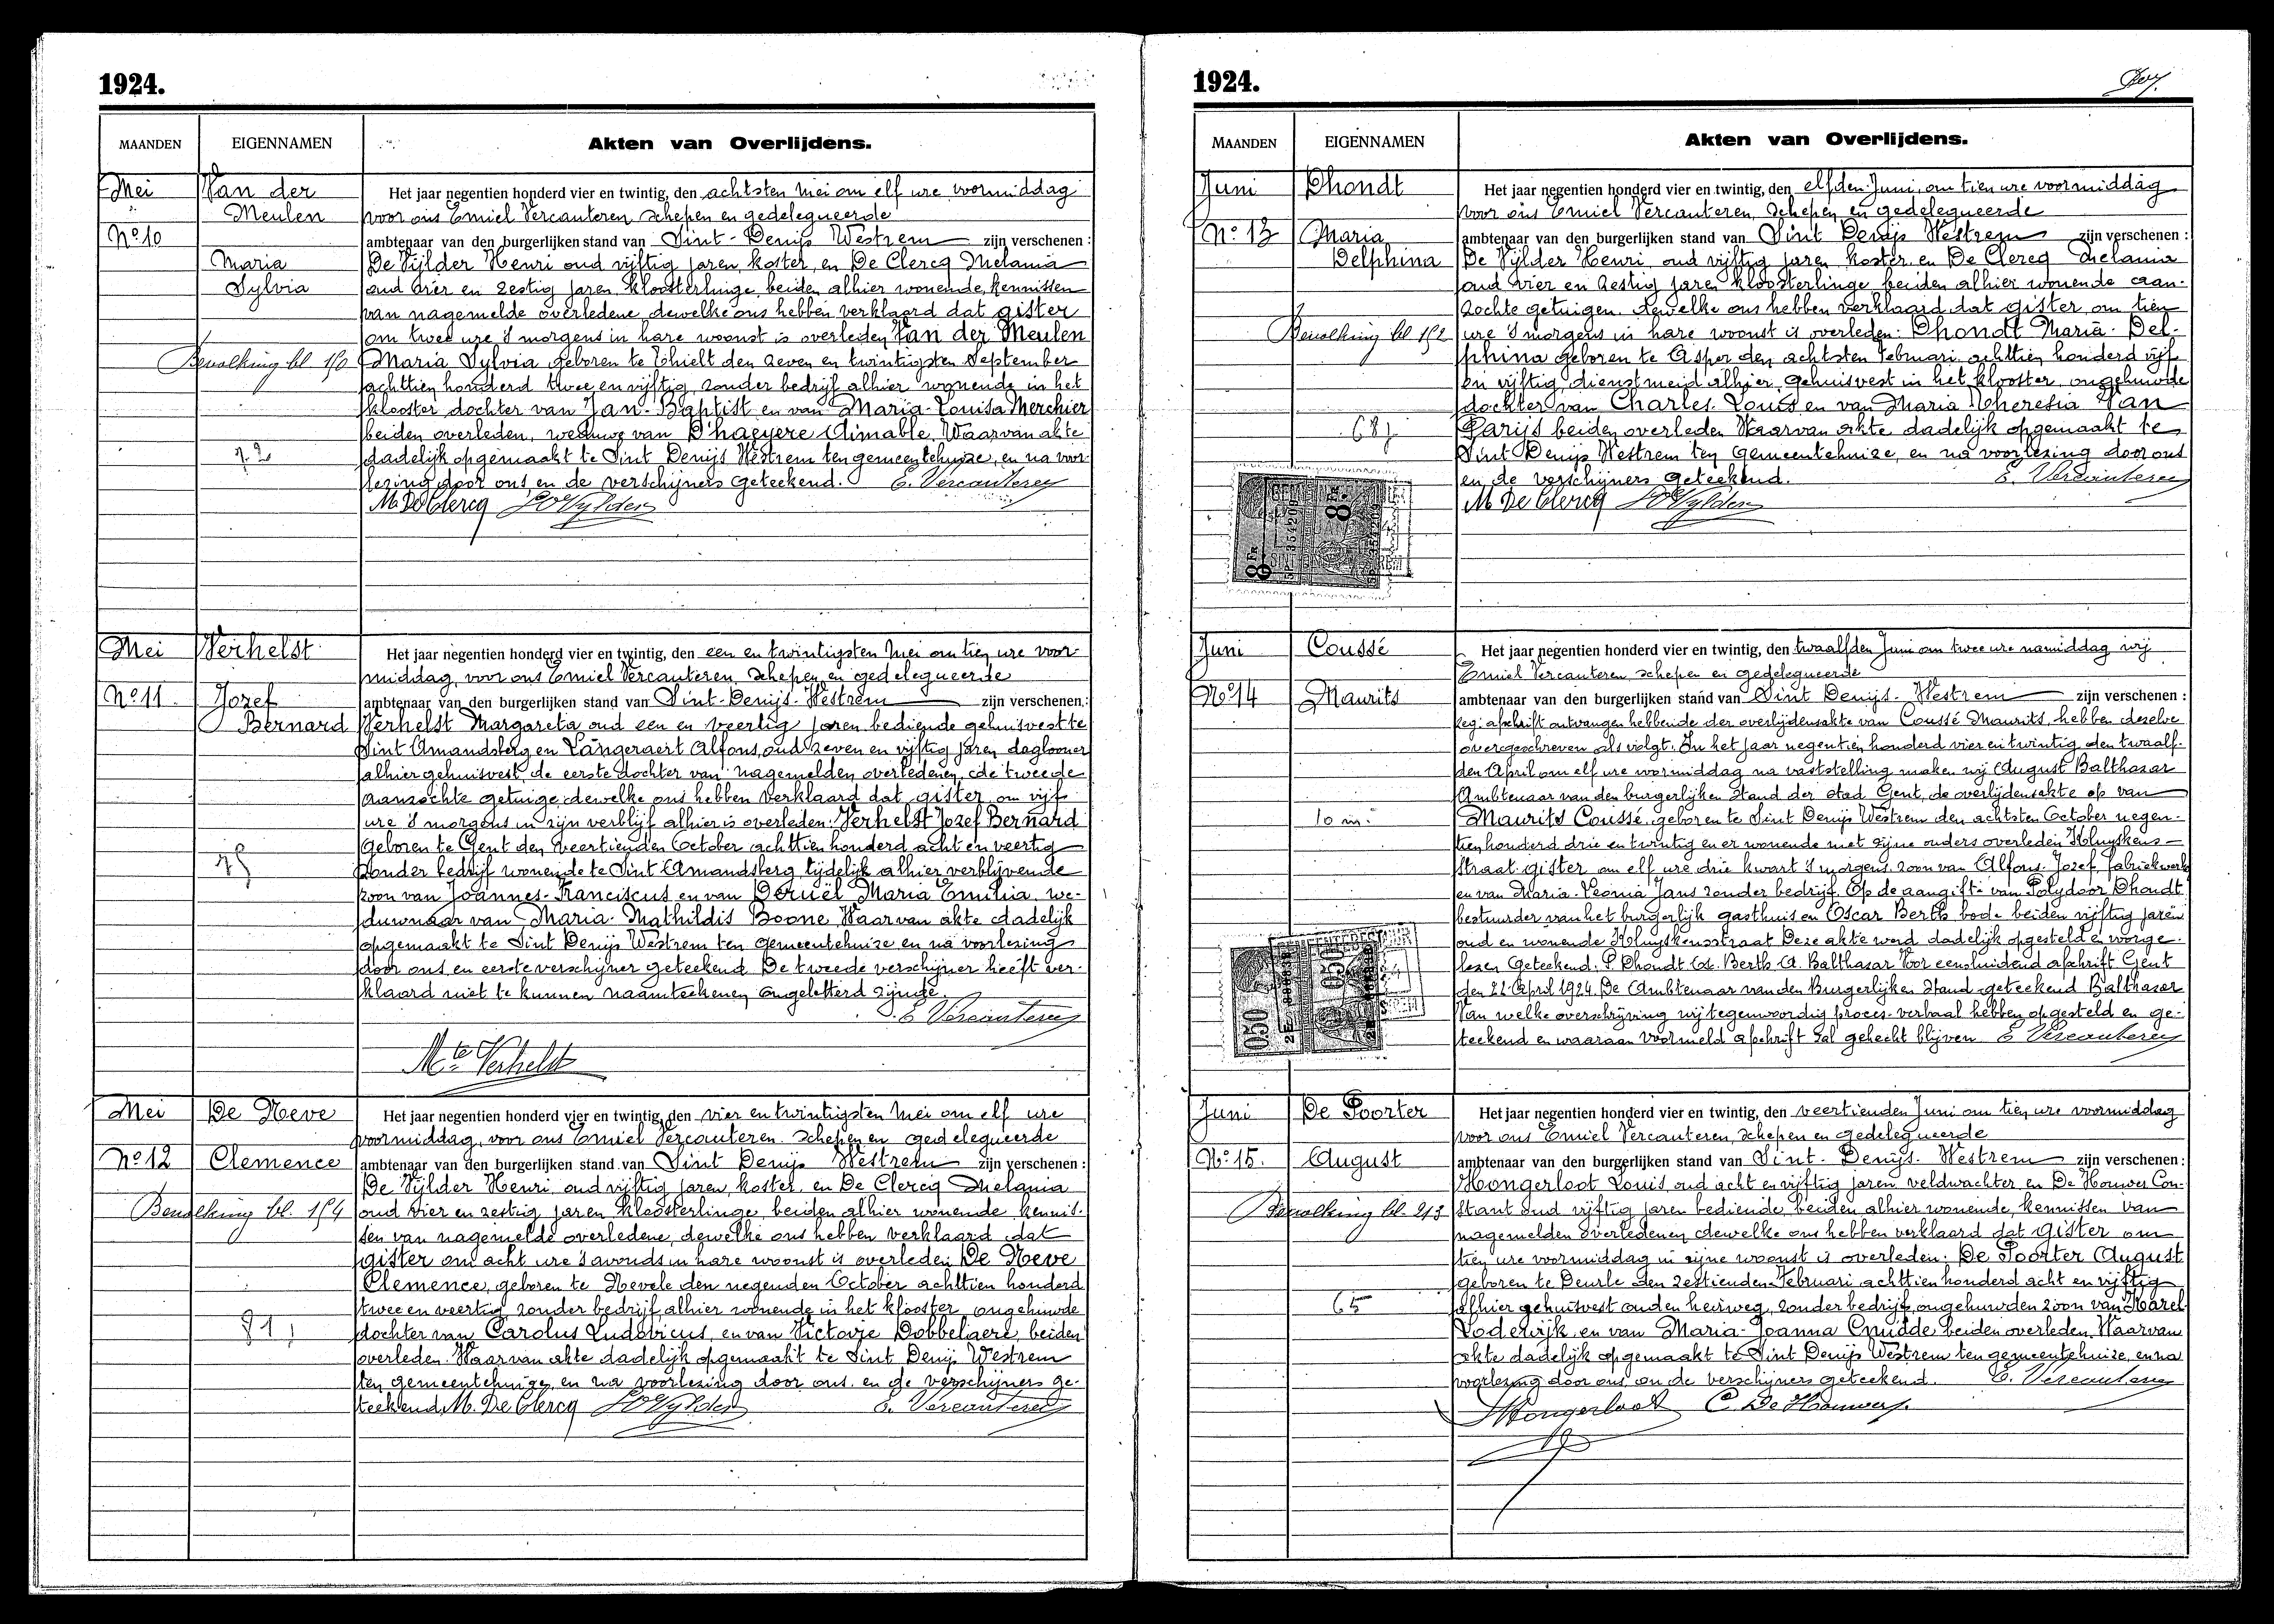 1924.
MAANDEN
EIGENNAMEN
Akten van Overlijdens.
Mei
Van der
Meulen
No 10
Maria
Sylvia
Bevolking bl. 150
72
Het jaar negentien honderd vier en twintig, den achtsten Mei om elf ure voormiddag
voor ons Emiel Vercauteren, schepen en gedelegueerde
ambtenaar van den burgerlijken stand van Sint-Denijs Westrem zijn verschenen:
De Vijlder Henri oud vijftig jaren, koster, en De Clercq Melania
oud vier en zestig jaren kloosterlinge, beiden alhier wonende, kennissen
van nagemelde overledene dewelke ons hebben verklaard dat gister
om twee ure 's morgens in hare woonst is overleden Van der Meulen
Maria Sylvia geboren te Thielt den zeven en twintigsten September
achttien honderd twee en vijftig, zonder bedrijf alhier wonende in het
klooster dochter van Jan-Baptist en van Maria-Louisa Merchier
beiden overleden, weduwe van D'haeyere Aimable. Waarvan akte
dadelijk opgemaakt te Sint Denijs Westrem ten gemeentehuize, en na voor-
lezing door ons en de verschijners geteekend. E. Vercauteren
M. De Clercq HDeVylder
Mei
Verhelst
No 11.
Jozef
Bernard
75
Het jaar negentien honderd vier en twintig, den een en twintigsten Mei om tien ure voor-
middag, voor ons Emiel Vercauteren, schepen en gedelegueerde
ambtenaar van den burgerlijken stand van Sint-Denijs-Westrem zijn verschenen:
Verhelst Margareta oud een en veertig jaren bediende gehuisvest te
Sint Amandsberg en Langeraert Alfons, oud zeven en vijftig jaren daglooner
alhier gehuisvest, de eerste dochter van nagemelden overledenen, de tweede
aanzochte getuige, dewelke ons hebben verklaard dat gister om vijf
ure 's morgens in zijn verblijf alhier is overleden: Verhelst Jozef Bernard
geboren te Gent den veertienden October achttien honderd acht en veertig
zonder bedrijf wonende te Sint Amandsberg, tijdelijk alhier verblijvende
zoon van Joannes-Franciscus en van Deruël Maria Emilia, we-
duwnaar van Maria-Mathildis Boone. Waarvan akte dadelijk
opgemaakt te Sint Denijs Westrem ten gemeentehuize en na voorlezing
door ons en eerste verschijner geteekend De tweede verschijner heeft ver-
klaard niet te kunnen naamteekenen ongeletterd zijnde.
E. Vercauteren
Mte Verhelst
Mei
De Neve
No 12
Clemence
Bevolking bl. 154
81
Het jaar negentien honderd vier en twintig, den vier en twintigsten Mei om elf ure
voormiddag, voor ons Emiel Vercauteren. schepen en gedelegueerde
ambtenaar van den burgerlijken stand van Sint Denijs Westrem zijn verschenen:
De Vijlder Henri oud vijftig jaren, koster, en De Clercq Melania
oud vier en zestig jaren kloosterlinge, beiden alhier wonende kennis-
sen van nagemelde overledene, dewelke ons hebben verklaard dat
gister om acht ure 's avonds in hare woonst is overleden De Neve
Clemence, geboren te Nevele den negenden October achttien honderd
twee en veertig zonder bedrijf alhier wonende in het klooster, ongehuwde
dochter van Carolus Ludovicus, en van Victorie Dobbelaere, beiden
overleden. Waarvan akte dadelijk opgemaakt te Sint Denijs Westrem
ten gemeentehuize, en na voorlezing door ons en de verschijners ge-
teekend. M. De Clercq HDeVylder E. Vercauteren
1924.
MAANDEN
EIGENNAMEN
Akten van Overlijdens.
Juni
Dhondt
No 13
Maria
Delphina
Bevolking bl. 152
68
8 Fr
8 Fr
Het jaar negentien honderd vier en twintig, den elfden Juni, om tien ure voormiddag
voor ons Emiel Vercauteren, schepen en gedelegueerde
ambtenaar van den burgerlijken stand van Sint Denijs Westrem zijn verschenen:
De Vijlder Henri, oud vijftig jaren koster en De Clercq Melania
oud vier en zestig jaren kloosterlinge beiden alhier wonende aan-
zochte getuigen. dewelke ons hebben verklaard dat gister om tien
ure 's morgens in hare woonst is overleden: Dhondt Maria-Del-
phina geboren te Asper den achtsten Februari achttien honderd vijf
en vijftig dienstmeid alhier gehuisvest in het klooster, ongehuwde
dochter van Charles-Louis en van Maria Theresia Van
Parijs beiden overleden Waarvan akte dadelijk opgemaakt te
Sint Denijs Westrem ten gemeentehuize, en na voorlezing door ons
en de verschijners geteekend. E. Vercauteren
M De Clercq HDeVylder
Juni
Coussé
No 14
Maurits
10 m.
0.50
0.50
Het jaar negentien honderd vier en twintig, den twaalfden Juni om twee ure namiddag wij
Emiel Vercauteren, schepen en gedelegueerde
ambtenaar van den burgerlijken stand van Sint Denijs-Westrem zijn verschenen:
afschrift ontvangen hebbende der overlijdensakte van Coussé Maurits, hebben dezelve
overgeschreven als volgt. In het jaar negentien honderd vier en twintig den twaalf-
den April om elf ure voormiddag na vaststelling maken wij August Balthazar
Ambtenaar van den burgerlijken stand der stad Gent, de overlijdensakte op van
Maurits Coussé, geboren te Sint Denijs Westrem den achtsten October negen-
tien honderd drie en twintig en er wonende met zijne ouders overleden Kluyskens-
straat gister om elf ure drie kwart 's morgens. zoon van Alfons-Jozef fabriekwerk.
en van Maria-Leonia Jans zonder bedrijf. Op de aangifte van Polydoor Dhondt
bestuurder van het burgerlijk gasthuis en Oscar Berth bode beiden vijftig jaren
oud en wonende Kluyskensstraat Deze akte werd dadelijk opgesteld en voorge-
lezen Geteekend. P. Dhondt Os. Berth A. Balthazar Voor eensluidend afschrift Gent
den 22 April 1924. De Ambtenaar van den Burgerlijken Stand geteekend Balthazar
Van welke overschrijving wij tegenwoordig proces-verbaal hebben opgesteld en ge-
teekend en waaraan voormeld afschrift zal gehecht blijven E Vercauteren
Juni
De Poorter
No 15.
August
Bevolking bl. 213
65
Het jaar negentien honderd vier en twintig, den veertienden Juni om tien ure voormiddag
voor ons Emiel Vercauteren, schepen en gedelegueerde
ambtenaar van den burgerlijken stand van Sint-Denijs-Westrem zijn verschenen:
Hongerloot Louis, oud acht en vijftig jaren veldwachter en De Houwer Con-
stant oud vijftig jaren bediende, beiden alhier wonende, kennissen van
nagemelden overledenen dewelke ons hebben verklaard dat gister om
tien ure voormiddag in zijne woonst is overleden: De Poorter August
geboren te Deurle den zestienden Februari achttien honderd acht en vijftig
alhier gehuisvest ouden heirweg, zonder bedrijf, ongehuwden zoon van Karel
Lodewijk en van Maria-Joanna Cnudde beiden overleden, Waarvan
akte dadelijk opgemaakt te Sint Denijs Westrem ten gemeentehuize, en na
voorlezing door ons en de verschijners geteekend. E. Vercauteren
LHongerloot C. De Houwer